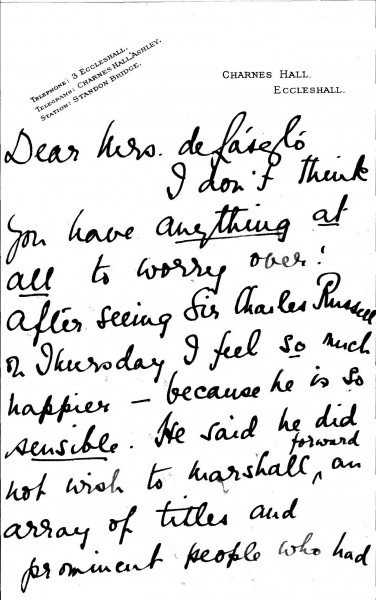 TELEPHONE: 3 ECCLESHALL.
TELEGRAMS: CHARNES HALL, ASHLEY.
STATION: STANDON BRIDGE.
CHARNES HALL.
ECCLESHALL.
Dear Mrs. de László
I don't think
you have anything at
all to worry over!
After seeing Sir Charles Russell
on Thursday I feel so much
happier – because he is so
sensible. He said he did
not wish to marshall, forward an
array of titles and
prominent people who had